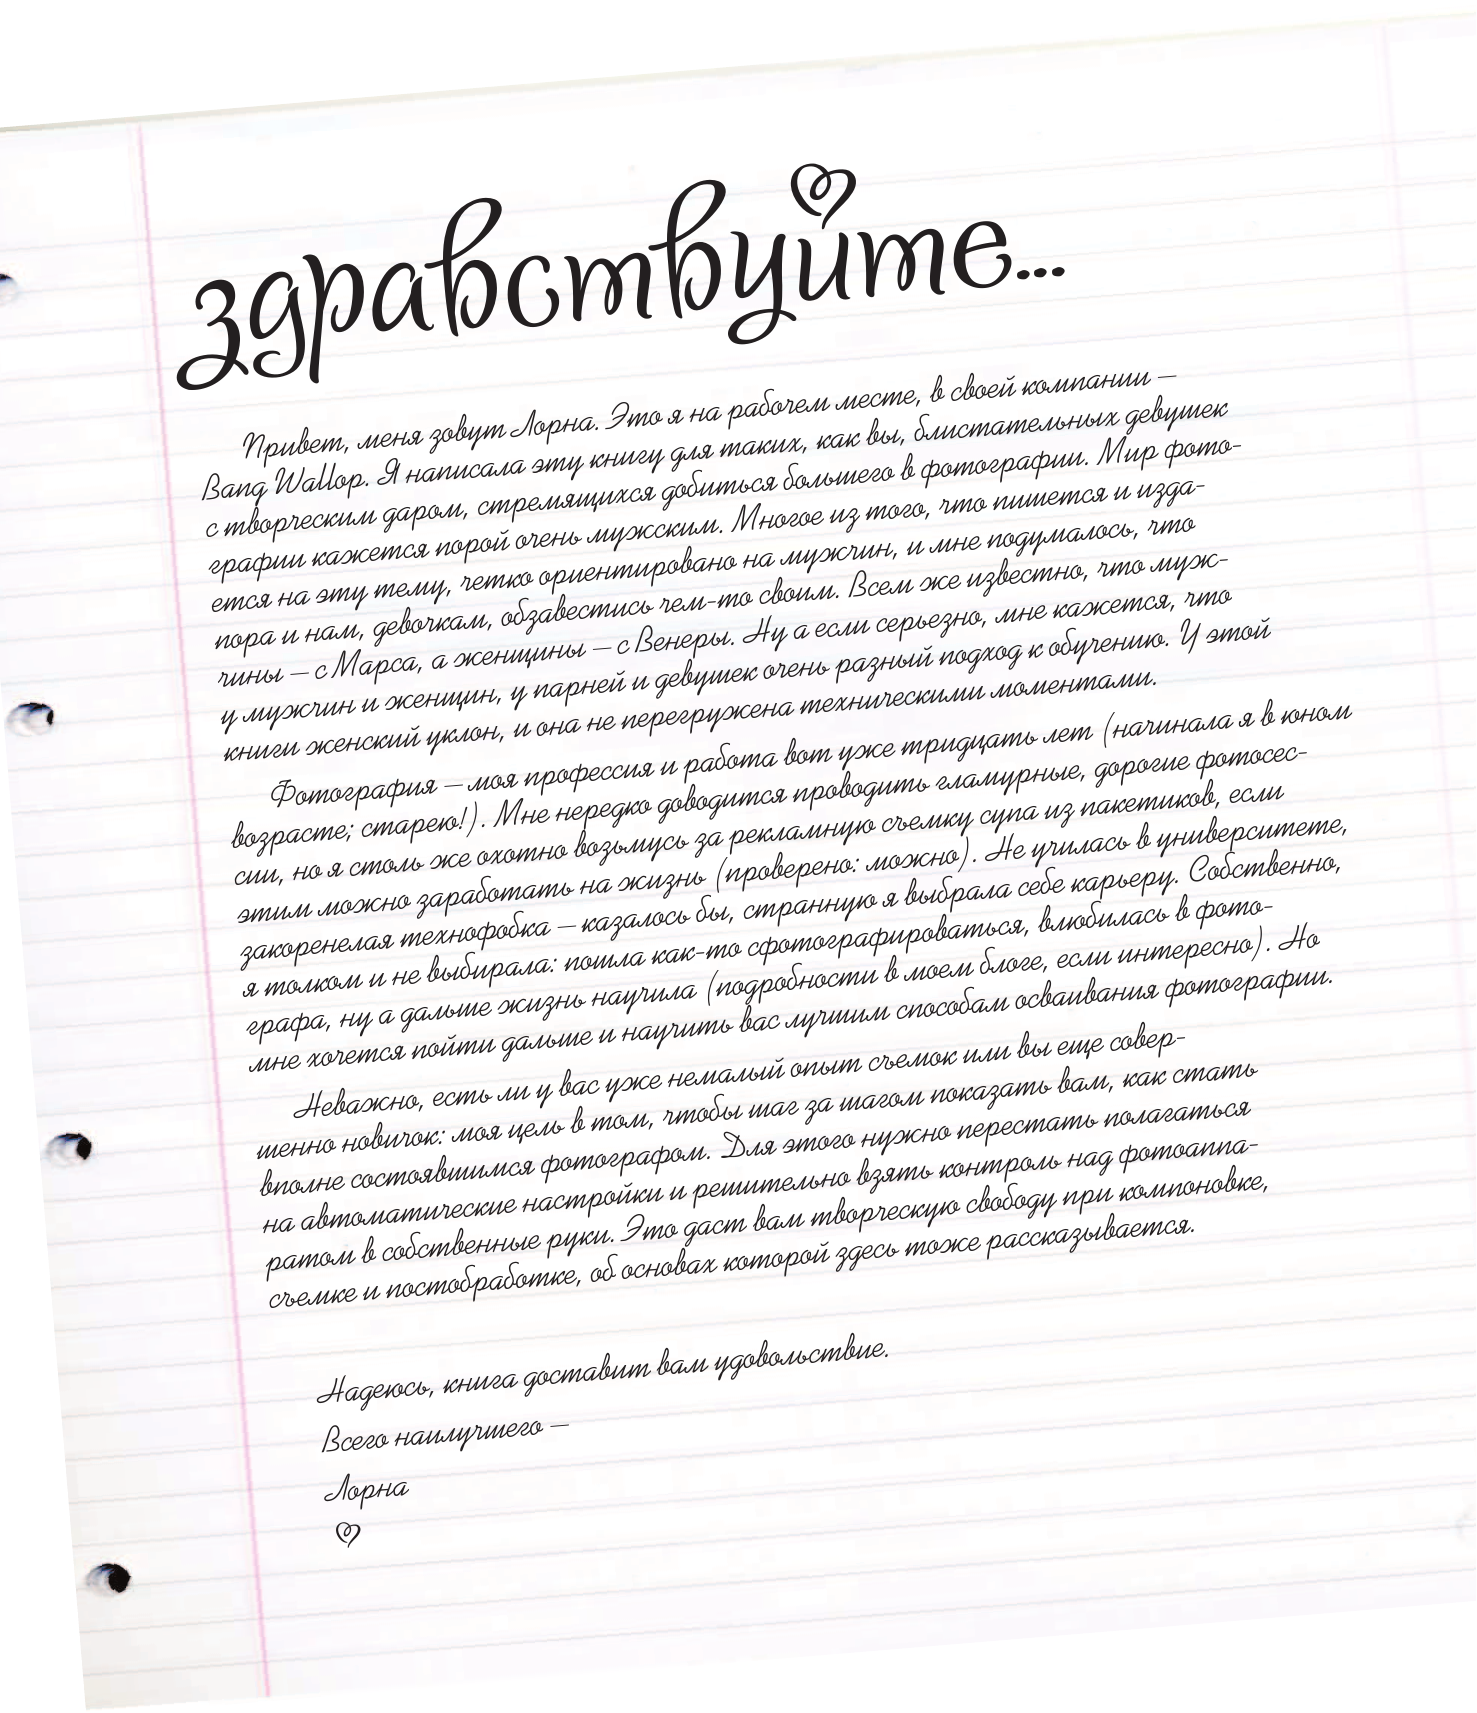 здравствуйте...
Привет, меня зовут Лорна. Это я на рабочем месте, в своей компании —
Bang Wallop. Я написала эту книгу для таких, как вы, блистательных девушек
с творческим даром, стремящихся добиться большего в фотографии. Мир фото-
графии кажется порой очень мужским. Многое из того, что пишется и изда-
ется на эту тему, четко ориентировано на мужчин, и мне подумалось, что
пора и нам, девочкам, обзавестись чем-то своим. Всем же известно, что муж-
чины — с Марса, а женщины — с Венеры. Ну а если серьезно, мне кажется, что
у мужчин и женщин, у парней и девушек очень разный подход к обучению. У этой
книги женский уклон, и она не перегружена техническими моментами.
Фотография — моя профессия и работа вот уже тридцать лет (начинала я в юном
возрасте; старею!). Мне нередко доводится проводить гламурные, дорогие фотосес-
сии, но я столь же охотно возьмусь за рекламную съемку супа из пакетиков, если
этим можно заработать на жизнь (проверено: можно). Не училась в университете,
закоренелая технофобка — казалось бы, странную я выбрала себе карьеру. Собственно,
я толком и не выбирала: пошла как-то сфотографироваться, влюбилась в фото-
графа, ну а дальше жизнь научила (подробности в моем блоге, если интересно). Но
мне хочется пойти дальше и научить вас лучшим способам осваивания фотографии.
Неважно, есть ли у вас уже немалый опыт съемок или вы еще совер-
шенно новичок: моя цель в том, чтобы шаг за шагом показать вам, как стать
вполне состоявшимся фотографом. Для этого нужно перестать полагаться
на автоматические настройки и решительно взять контроль над фотоаппа-
ратом в собственные руки. Это даст вам творческую свободу при компоновке,
съемке и постобработке, об основах которой здесь тоже рассказывается.
Надеюсь, книга доставит вам удовольствие.
Всего наилучшего —
Лорна